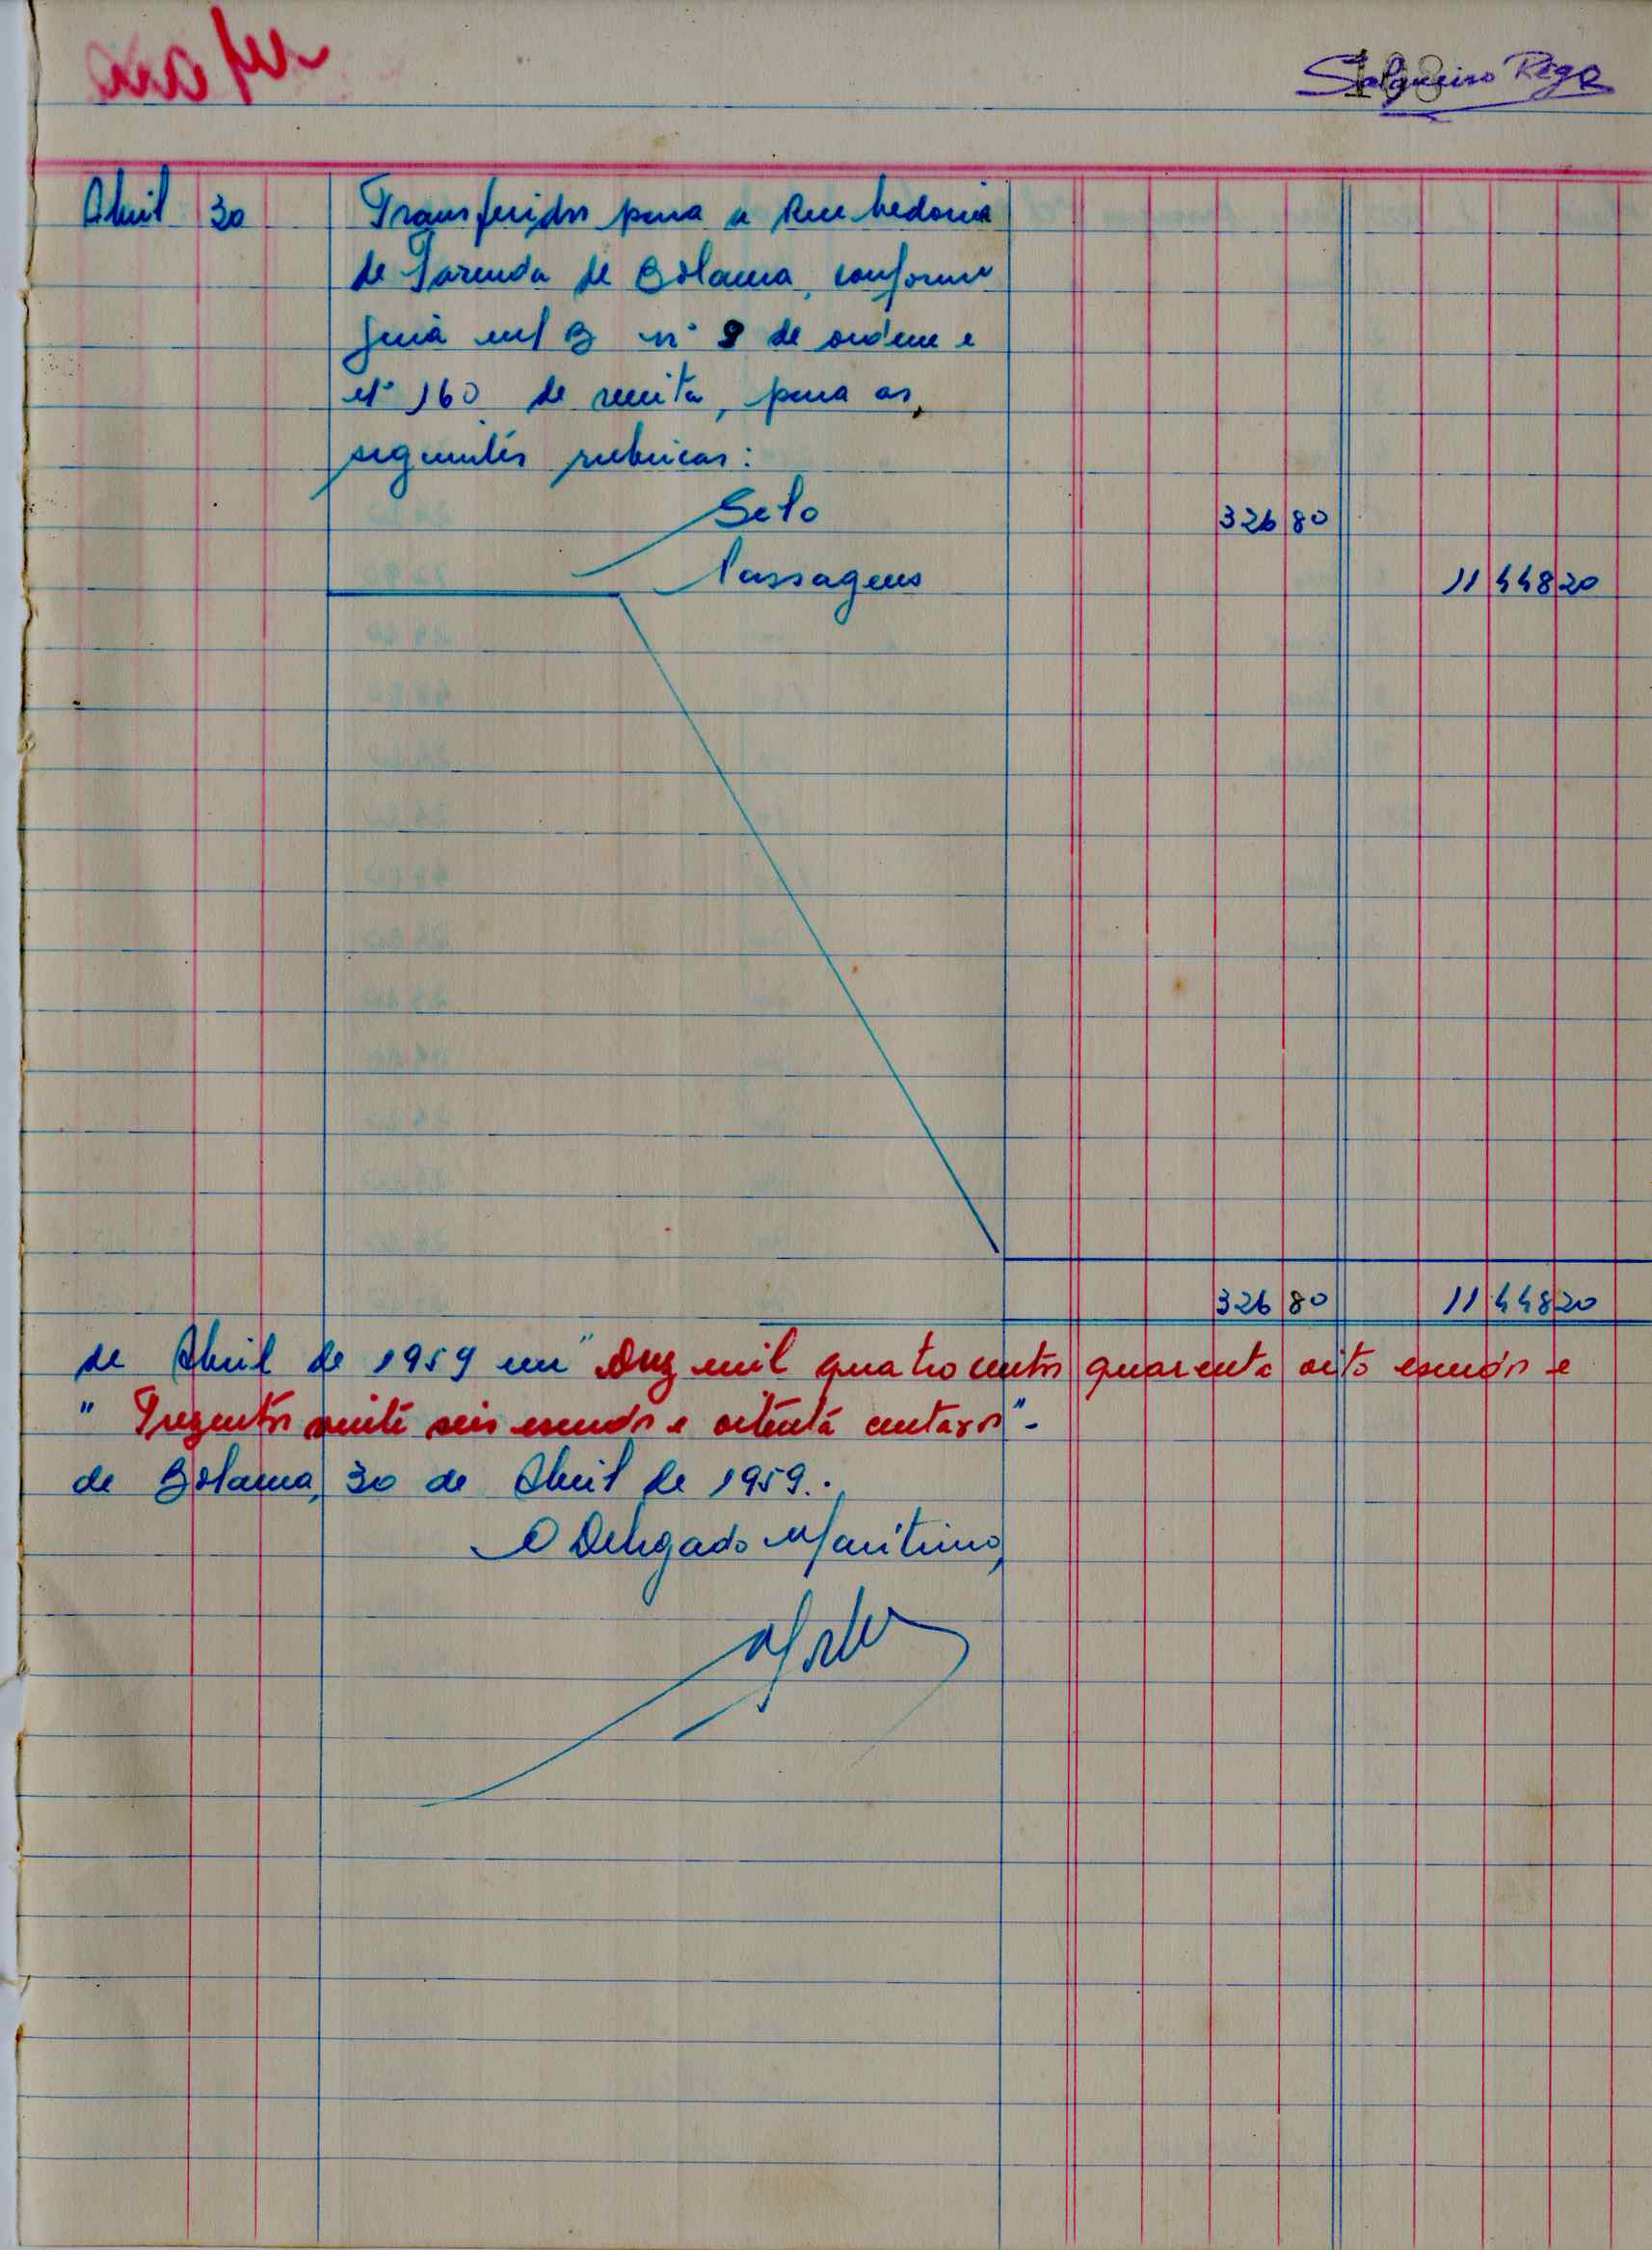 168
Salgueiro Rego
Abril 30 Transferidos para a Recebedoria
de Fazenda de Bolama, conforme
guia m/ B nº 9 de ordem e
nº 160 de receita, para as
seguintes rubricas:
Selo 326 80
Passagens 11 448 20
326 80 11 448 20
de Abril de 1959 em "Onze mil quatrocentos quarenta oito escudos e
"Trezentos vinte seis escudos e oitenta centavos"-
de Bolama, 30 de Abril de 1959.
O Delegado Marítimo,